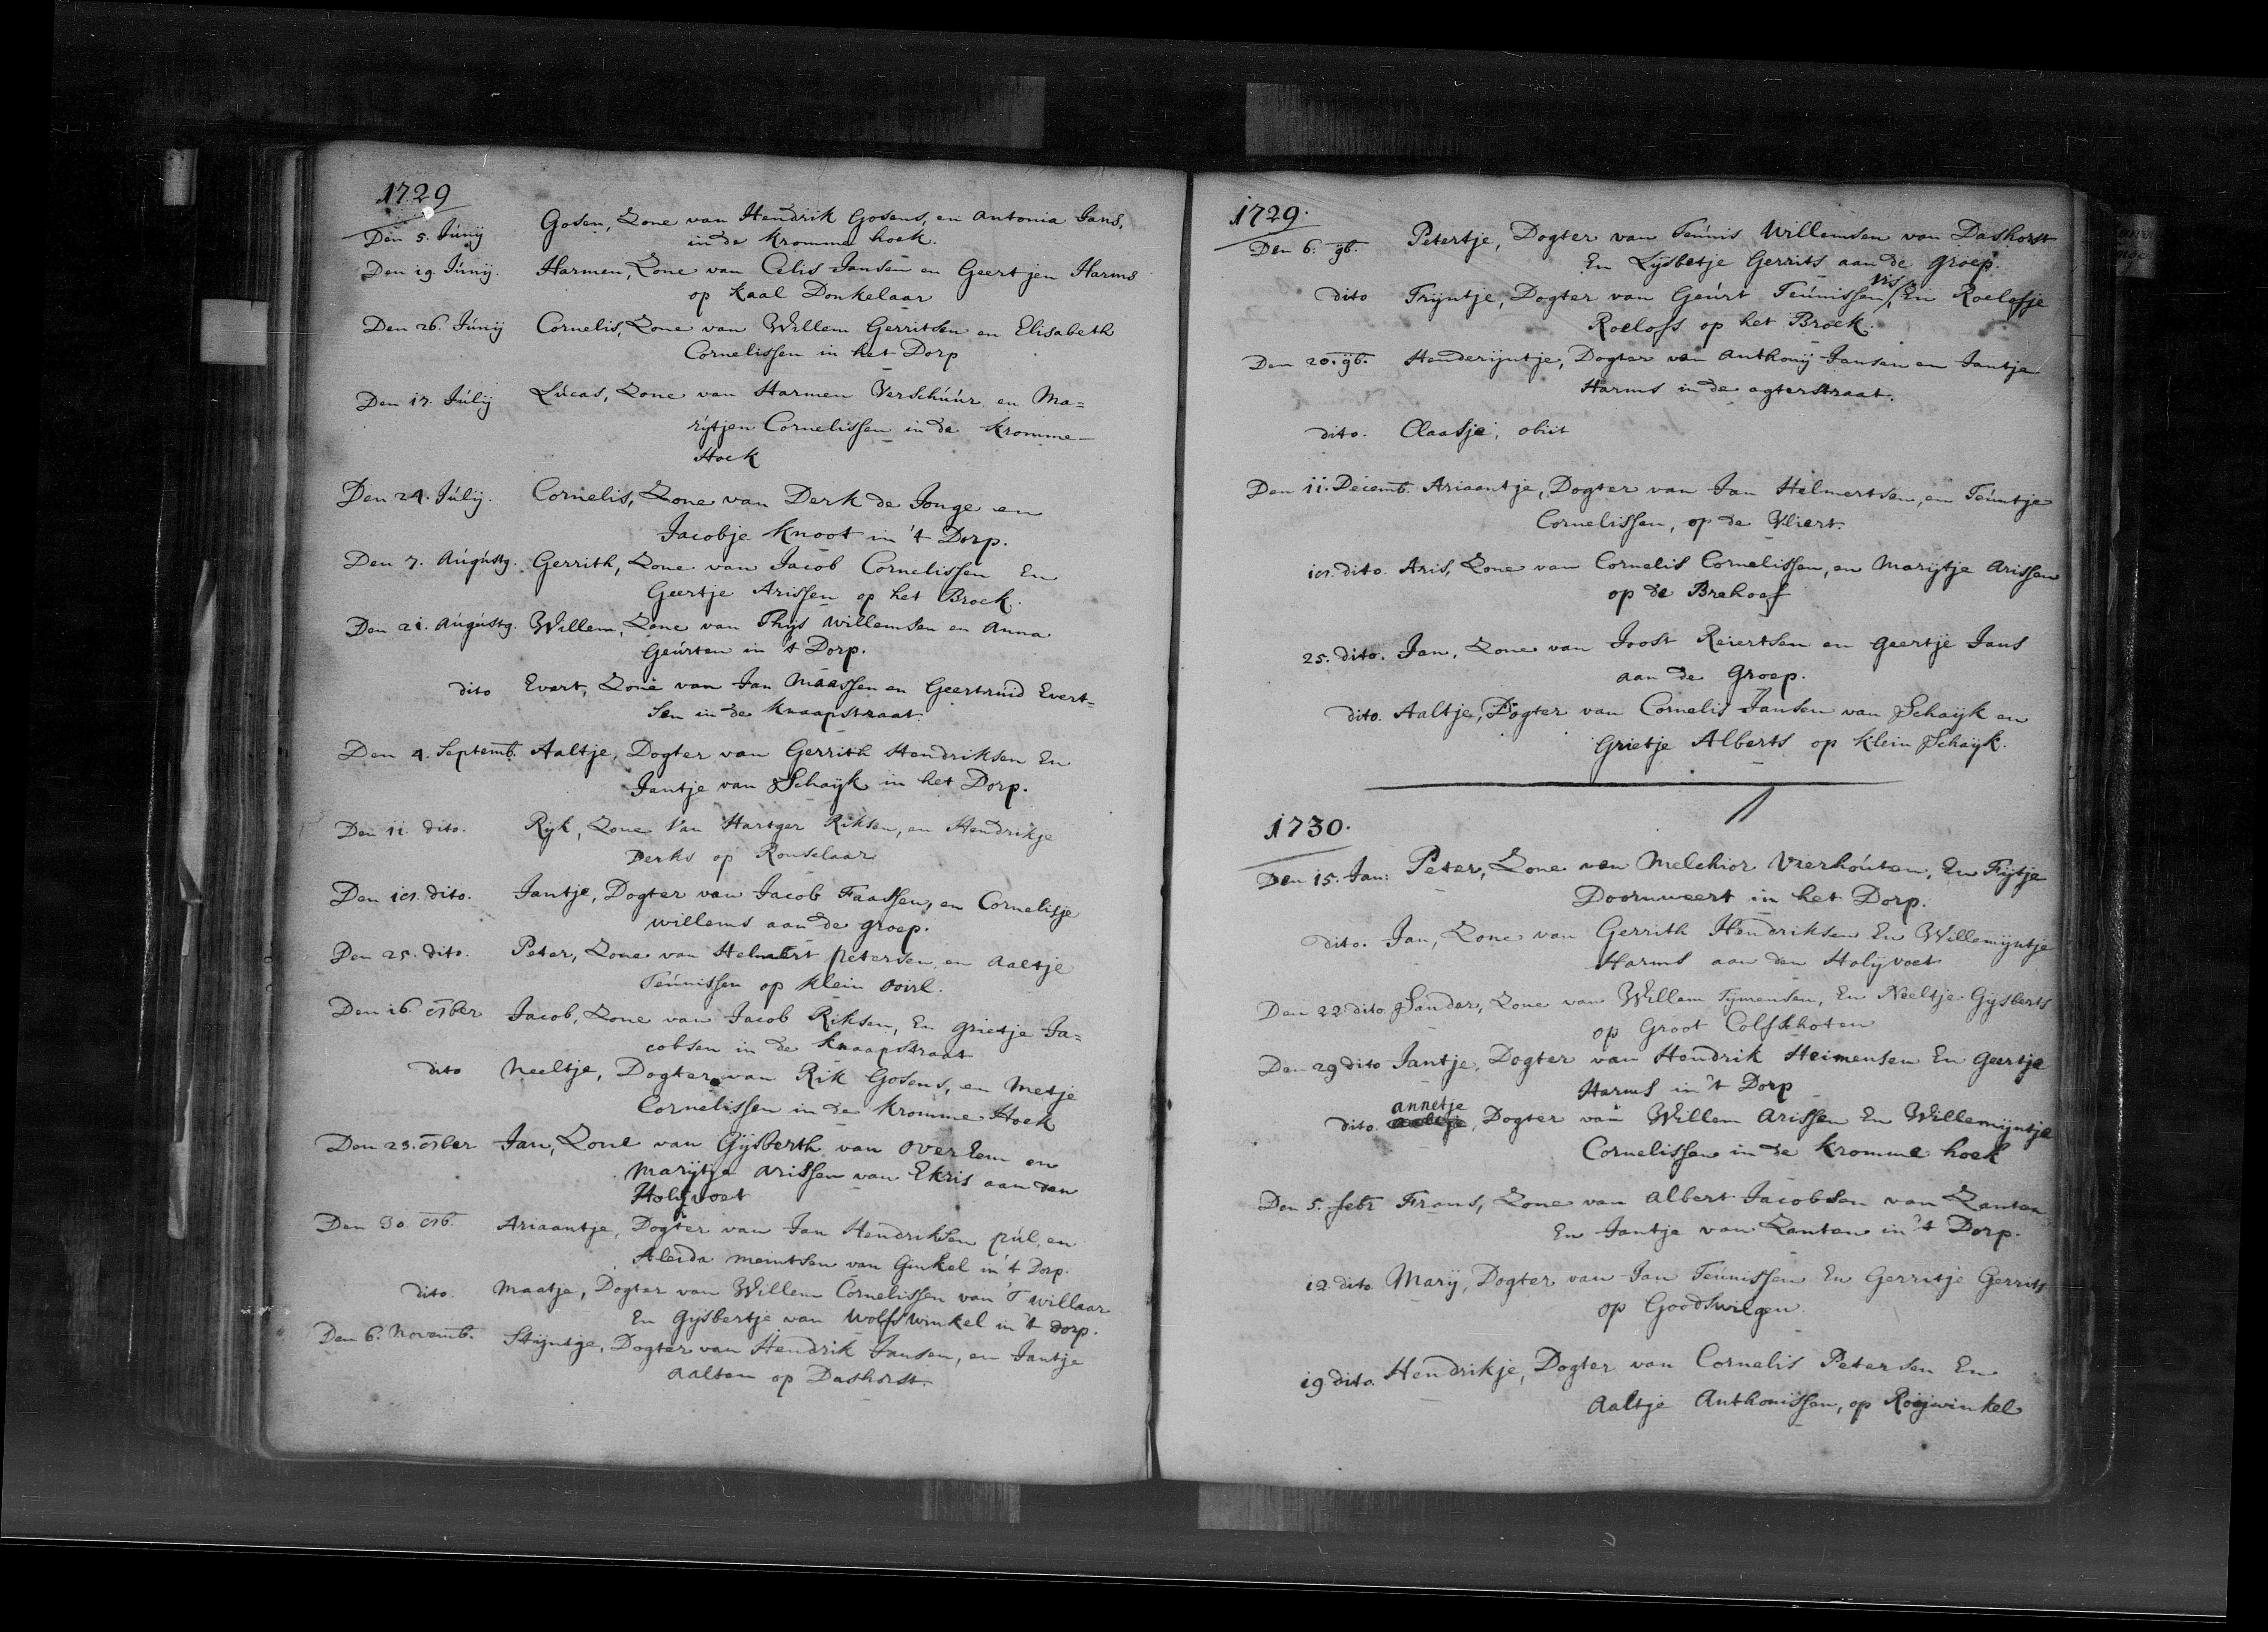 1729
Den 5. Júnij Gosen, Zone van Hendrik Gosens, en Antonia Jans,
in de kromme hoek.
Den 19. Júnij. Harmen, Zone van Celis Jansen en Geertjen Harms
op kaal Donkelaar
Den 26. Júnij Cornelis, Zone van Willem Gerritsen en Elisabeth
Cornelissen in het Dorp
Den 17. Júlij Lúcas, Zone van Harmen Verschúúr en Ma=
rijtjen Cornelissen in de kromme-
Hoek
Den 24. Júlij. Cornelis, Zone van Derk de Jonge en
Jacobje Knoot in 't Dorp.
Den 7. Aúgústg. Gerrith, Zone van Jacob Cornelissen En
Geertje Arissen op het Broek.
Den 21. Aúgústg. Willem, Zone van Thijs Willemsen en Anna
Geúrten in 't Dorp.
dito Evart, Zone van Jan Maassen en Geertruid Evert=
sen in de knaapstraat.
Den 4. Septemb. Aaltje, Dogter van Gerrith Hendriksen En
Jantje van Schaijk in het Dorp.
Den 11. dito. Rijk, Zone Van Hartger Riksen, en Hendrikje
Derks op Ronselaar
Den dito. Jantje, Dogter van Jacob Faassen, en Cornelisje
willems aan de groep.
Den 25. dito. Peter, Zone van Helmert petersen, en Aaltje
Teúnissen op klein
Den 16. Jacob, Zone van Jacob Riksen, En grietje Ja=
cobsen in de knaapstraat
dito Neeltje, Dogter van Rik Gosens, en Metje
Cornelissen in de kromme Hoek
Den 23. Jan, Zone van Gijsberth van overeem en
Marijtje arissen van Ekris aan den
Holijvoet
Den 30. Ariaantje, Dogter van Jan Hendriksen púl, en
Aleida meintsen van Ginkel in 't Dorp.
dito. Maatje, Dogter van Willem Cornelissen van T willaar
En Gijsbertje van Wolfswinkel in 't dorp.
Den 6. Novemb. Stijntje, Dogter van Hendrik Jansen, en Jantje
Aalten op Dashorst.
1729.
Den 6. 9b. Petertje, Dogter van Teúnis Willemsen van Dashorst
En Lijsbetje Gerrits aan de groep.
vis
dito Trijntje, Dogter van Geúrt Teúnissen / En Roelofje
Roelofs op het Broek.
Den 20. 9b. Henderijntje, Dogter van Anthonij Jansen en Jantje
Harms in de agterstraat.
dito. Claasje, obiit
Den 11. Decemb. Ariaantje, Dogter van Jan Helmertsen, en Teúntje
Cornelissen, op de Vliert.
dito. Aris, Zone van Cornelis Cornelissen, en Marijtje Arissen
op de Brehoef
25. dito. Jan, Zone van Joost Reiertsen en geertje Jans
aan de Groep.
dito. Aaltje, Dogter van Cornelis Jansen van Schaijk en
Grietje Alberts op klein Schaijk.
1730.
Den 15. Jan: Peter, Zone van Melchior Vierhoúten, En Fijtje
Doornweert in het Dorp.
dito. Jan, Zone van Gerrith Hendriksen En Willemijntje
Harms aan den Holijvoet
Den 22 dito Sander, Zone van Willem Tijmensen, En Neeltje Gijsberts
op Groot Colfskhoten
Den 29 dito Jantje, Dogter van Hendrik Heimensen En Geertje
Harms in 't Dorp
annetje
dito. Aaltje, Dogter van Willem Arissen En Willemijntje
Cornelissen in de kromme hoek
Den 5. febr Frans, Zone van Albert Jacobsen van Zanten
En Jantje van Zanten in 't Dorp.
12 dito Marij, Dogter van Jan Teúnissen En Gerritje Gerrits
op Goodswilgen
19 dito. Hendrikje, Dogter van Cornelis Petersen En
Aaltje Anthonissen, op Roijwinkel